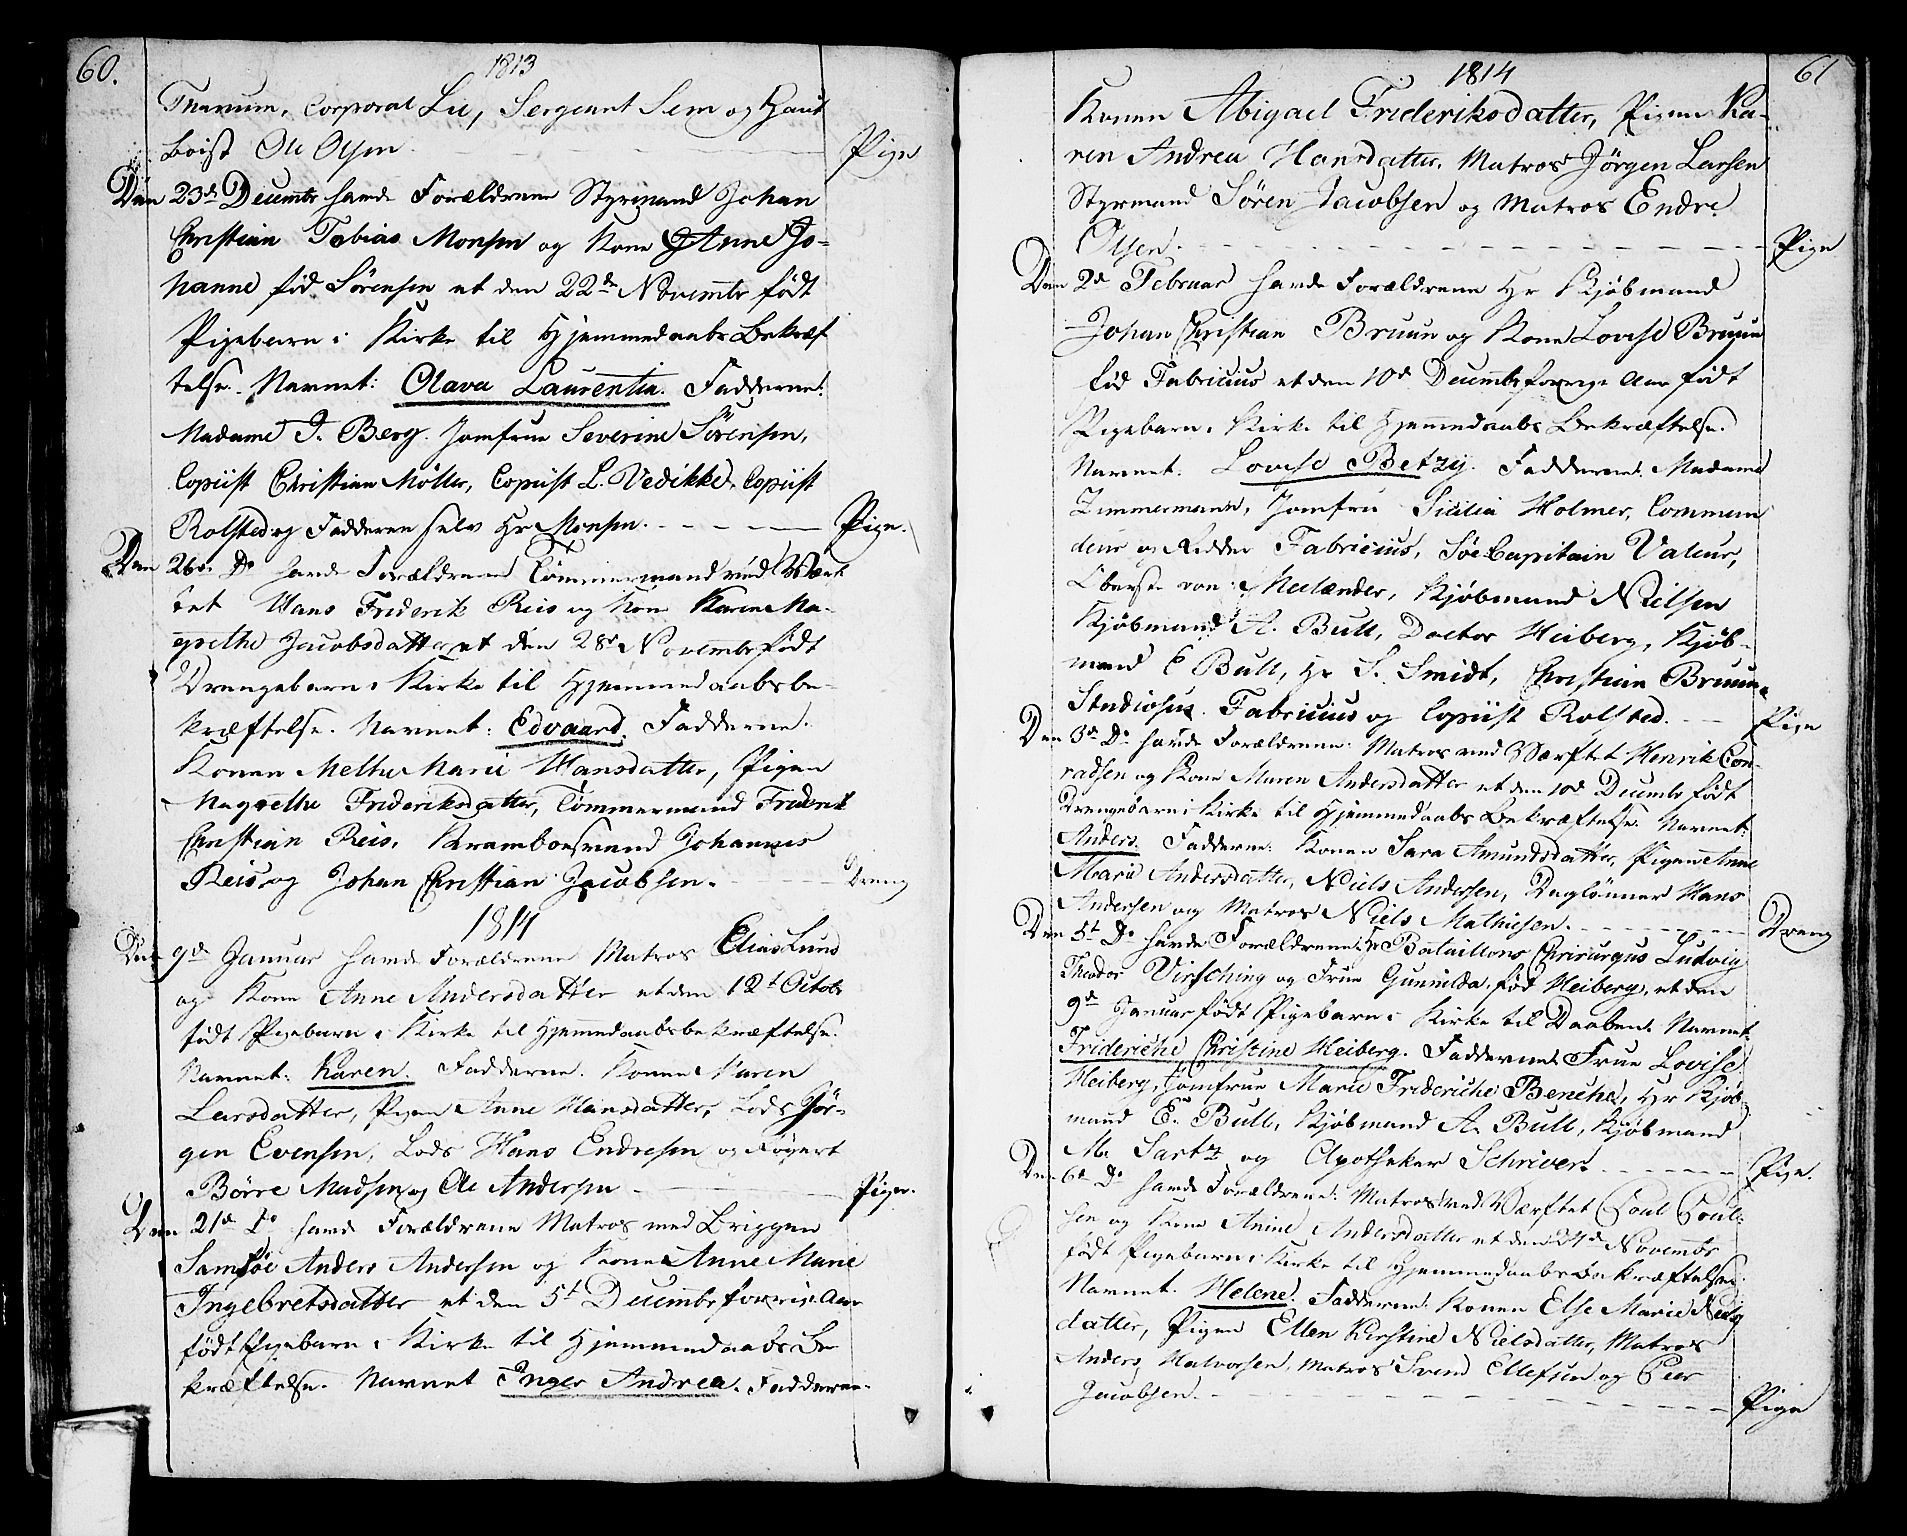 60.
1813
Tharum, Corporal Lie, Sergeant Sem og Haut
boist Ole Olsen. Pige
Den 23de Decembr havde Forældrene Styrmand Johan
Christian Tobias Monsen og Kone Anne Jo-
hanne fød Sörensen et den 22de Novembr født
Pigebarn i Kirke til Hjemmedaabs Bekræf
telse. Navnet: Olava Laurentia. Fadderne:
Madame J. Berg. Jomfrue Severine Sörensen,
Copiist Christian Möller, Copiist L. Vedikke, Copiist
Rolsted og Fadderen selv Hr Monsen. Pige.
Den 26de Do havde Forældrene Tömmermand ved Værf
tet Hans Friderik Reis og Kone Karen Ma-
grethe Jacobsdatter et den 28de Novembr født
Drengebarn i Kirke til Hjemmedaabsbe-
kræftelse. Navnet: Edvaard. Fadderne.
Konen Methe Marie Hansdatter, Pigen
Magrethe Frideriksdatter, Tömmermand Friderik
Christian Reis, Kramboesvend Johannes
Reis og Johan Christian Jacobsen. Dreng
1814
Den 9de Januar havde Forældrene Matros Elias Lund
og Kone Anne Andersdatter et den 12t Octobr
født Pigebarn i Kirke til Hjemmedaabsbekræftelse.
Navnet: Karen. Fadderne. Konen Maren
Larsdatter, Pigen Anne Hansdatter, Lods Jör-
gen Evensen, Lods Hans Endresen og
Börre Madsen og Ole Andersen Pige.
Den 21de Do havde Forældrene Matros med Briggen
Samsöe Anders Andersen og Kone Anne Marie
Ingebretsdatter et den 5t Decembr forrige Aar
født Pigebarn i Kirke til Hjemmedaabs Be
kræftelse. Navnet Inger Andrea. Fadderne.
61
1814
Konen Abigael Frideriksdatter, Pigen Ka-
ren Andrea Hansdatter, Matros Jörgen Larsen
Styrmand Sören Jacobsen og Matros Endre
Olsen. Pige
Den 2de Februar havde Forældrene Hr Kjöbmand
Johan Christian Bruun og Kone Lovise Bruun
fød Fabricius et den 10de Decembr forrige Aar født
Pigebarn i Kirke til Hjemmedaabs Bekræftelse.
Navnet. Lovise Betzy. Fadderne. Madame
Zimmermann, Jomfru Sicilia Holmer, Commen
deur og Ridder Fabricius, Söe Capitain Valeur,
Oberste von Meelænder, Kjöbmand Nielsen
Kjöbmand A. Bull, Doctor Heiberg, Kjöb-
mand E Bull, Hr S. Smidt, Christian Bruun
Studiosus Fabricius og Copiist Rolsted. Pige
Den 3de Do havde Forældrene. Matros ved Værftet Henrik Con-
radsen og Kone Maren Andersdatter et den 10de Decembr født
Drengebarn i Kirke til Hjemmedaabs Bekræftelse. Navnet:
Anders. Fadderne. Konen Sara Amundsdatter, Pigen Anne
Marie Andersdatter, Niels Andersen, Daglönner Hans
Andersen og Matros Niels Mathiesen. Dreng
Den 5t Do havde Forældrene: Hr Batallions Chrirurgus Ludvig
Theodor Virsching og Frue Gunnilda fød Heiberg, et den
9de Januar født Pigebarn i Kirke til Daaben. Navnet.
Frideriche Christine Heiberg. Fadderne Frue Lovise
Heiberg, Jomfrue Marie Frideriche Benche, Hr Kjöb-
mand E. Bull, Kjöbmand A. Bull, Kjöbmand
M. Sartz og Apotheker Schriver. Pige.
Den 6te Do havde Forældrene: Matros ved Værftet Poul Poul-
sen og Kone Anine Andersdatter et den 24de Novembr
født Pigebarn i Kirke til Hjemmedaabs Bekræftelse.
Navnet. Helene. Fadderne. Konen Else Marie Niels
datter, Pigen Ellen Kirstine Nielsdatter, Matros
Anders Halvorsen, Matros Svend Ellefsen og Peer
Jacobsen. Pige